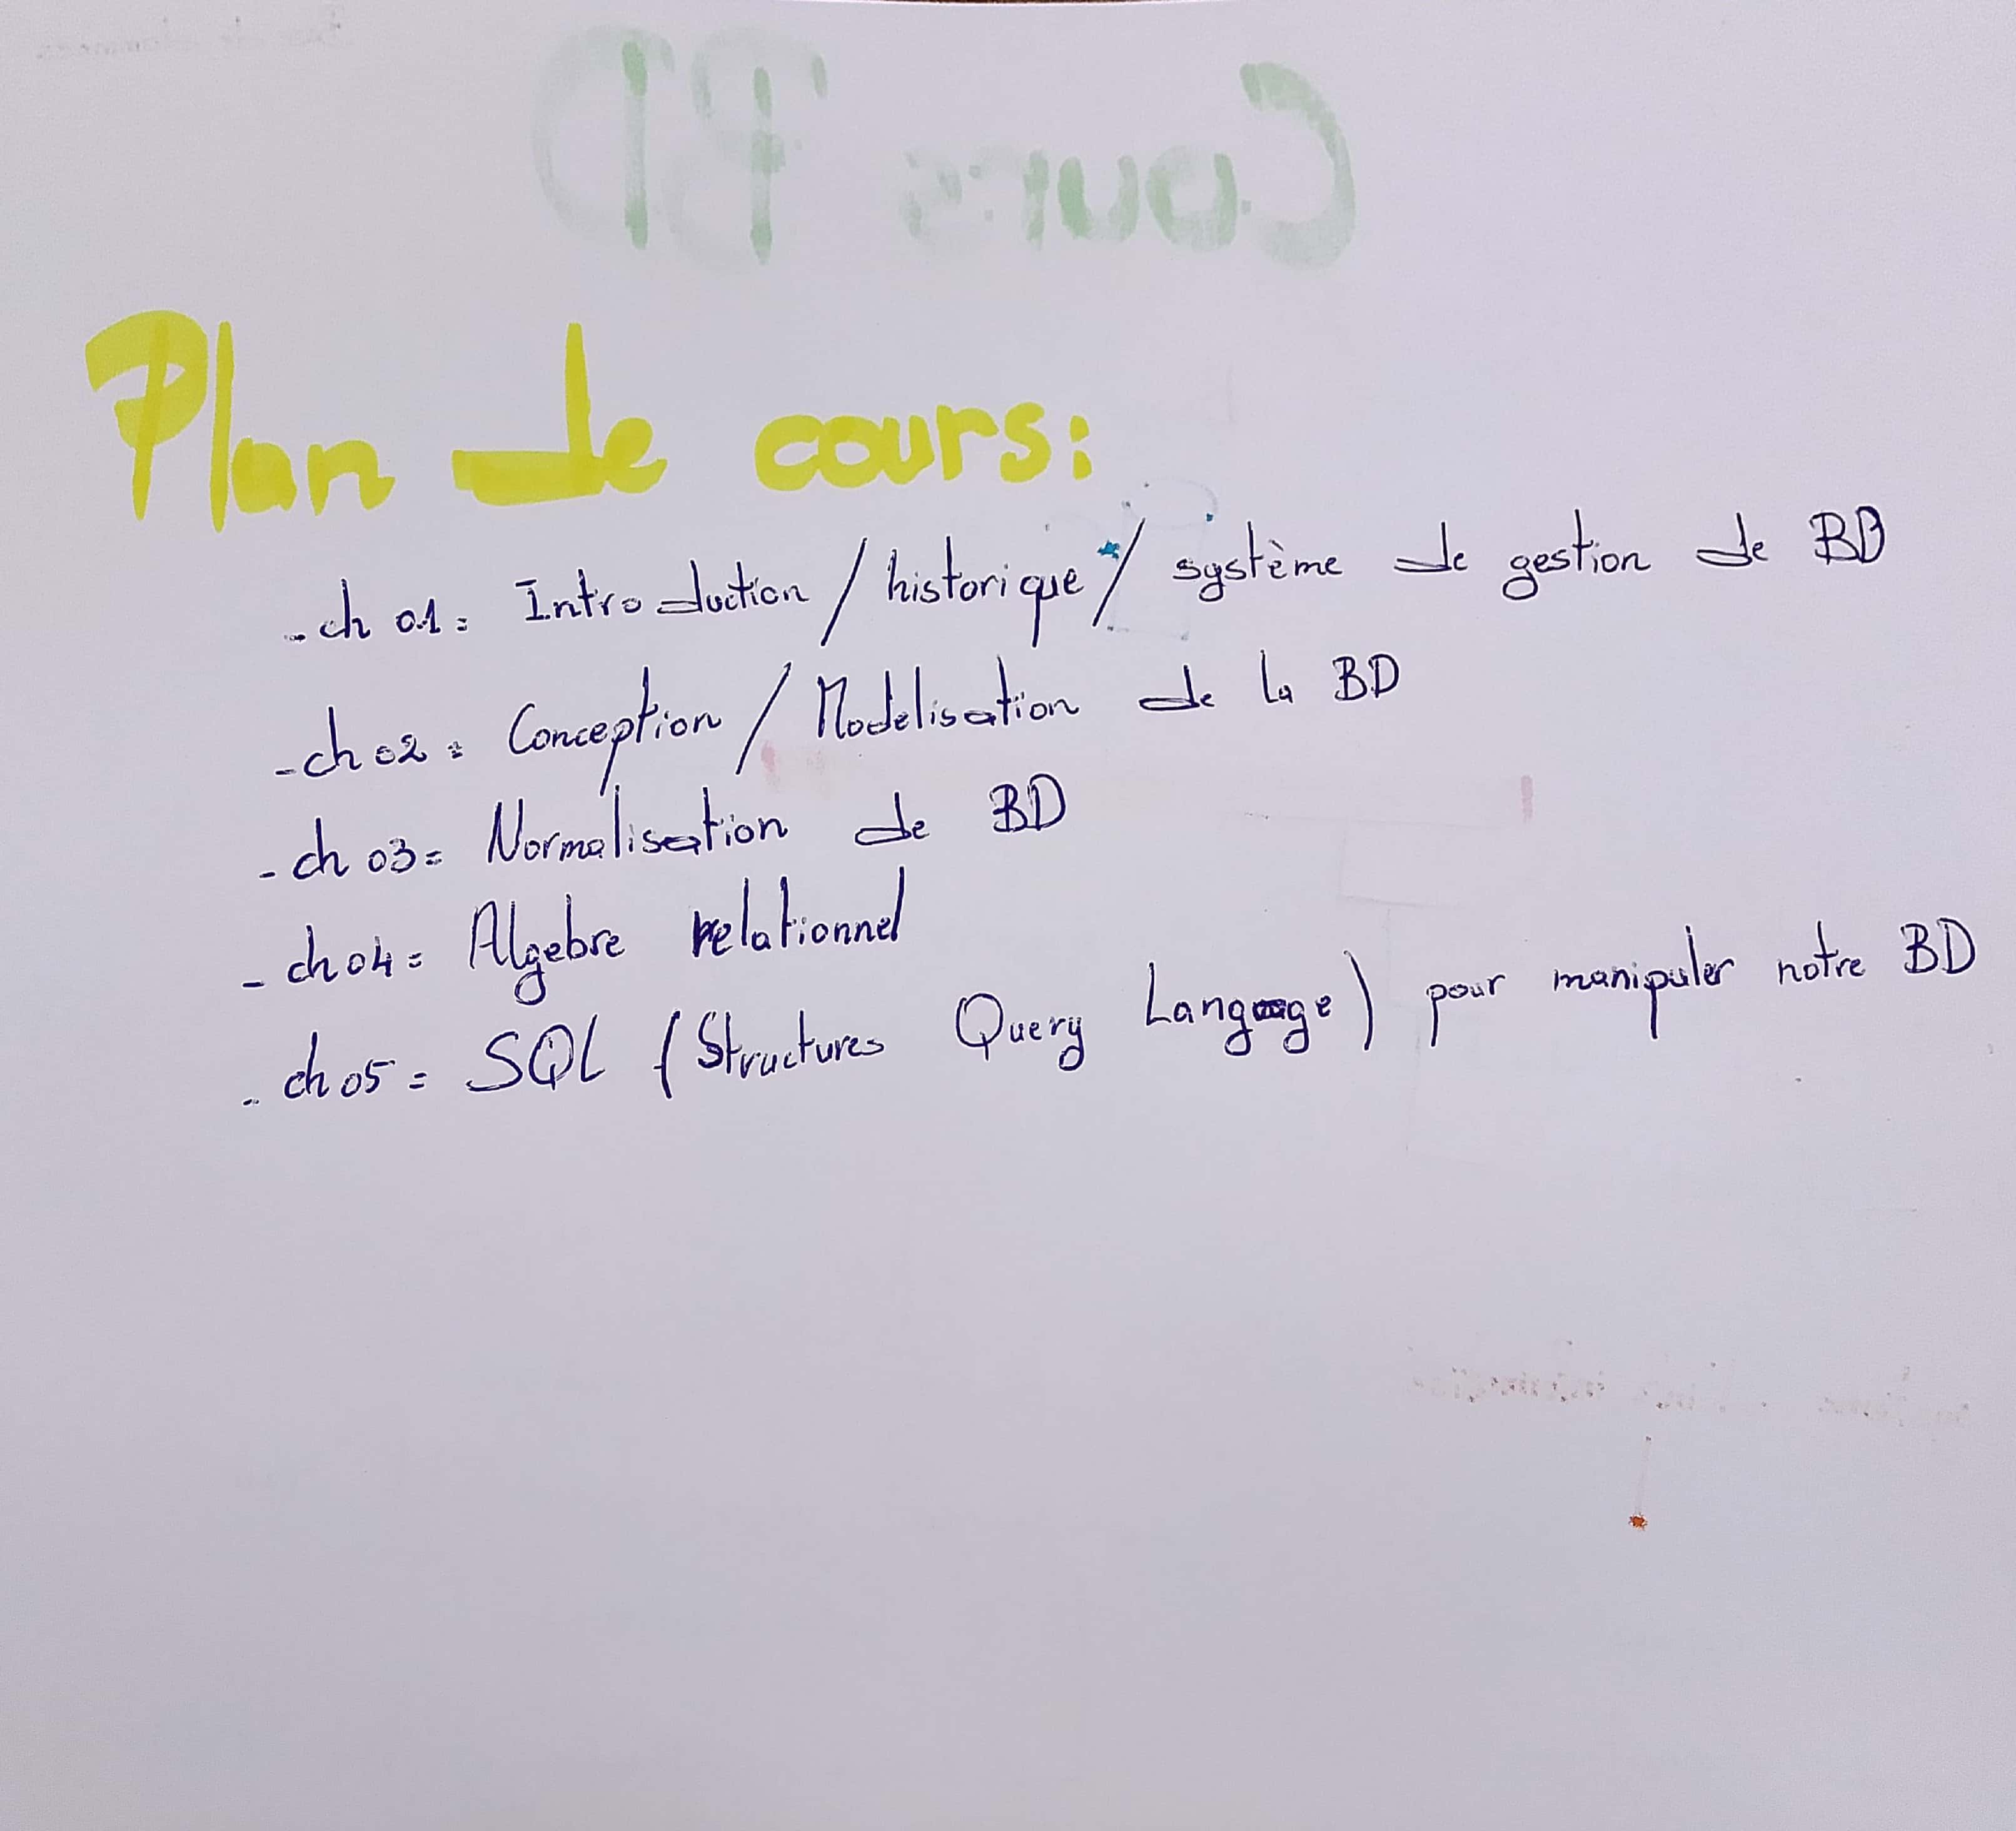 Cours BD
Plan de cours:
- ch 01: Introduction / historique / système de gestion de BD
- ch 02: Conception / Modelisation de la BD
- ch 03: Normalisation de BD
- ch 04: Algebre relationnel
- ch 05: SQL (Structures Query Language) pour manipuler notre BD